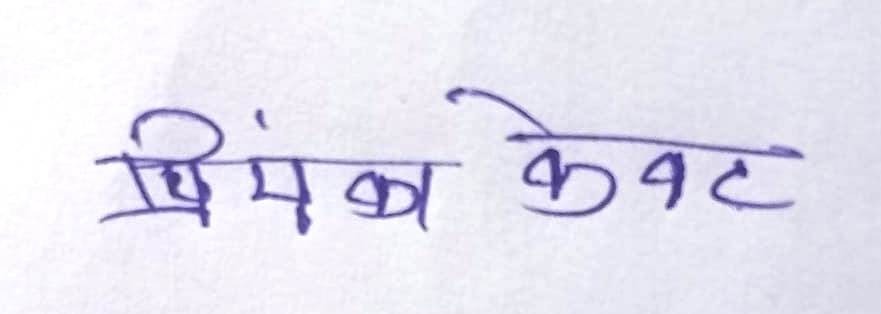 प्रियंका केवट